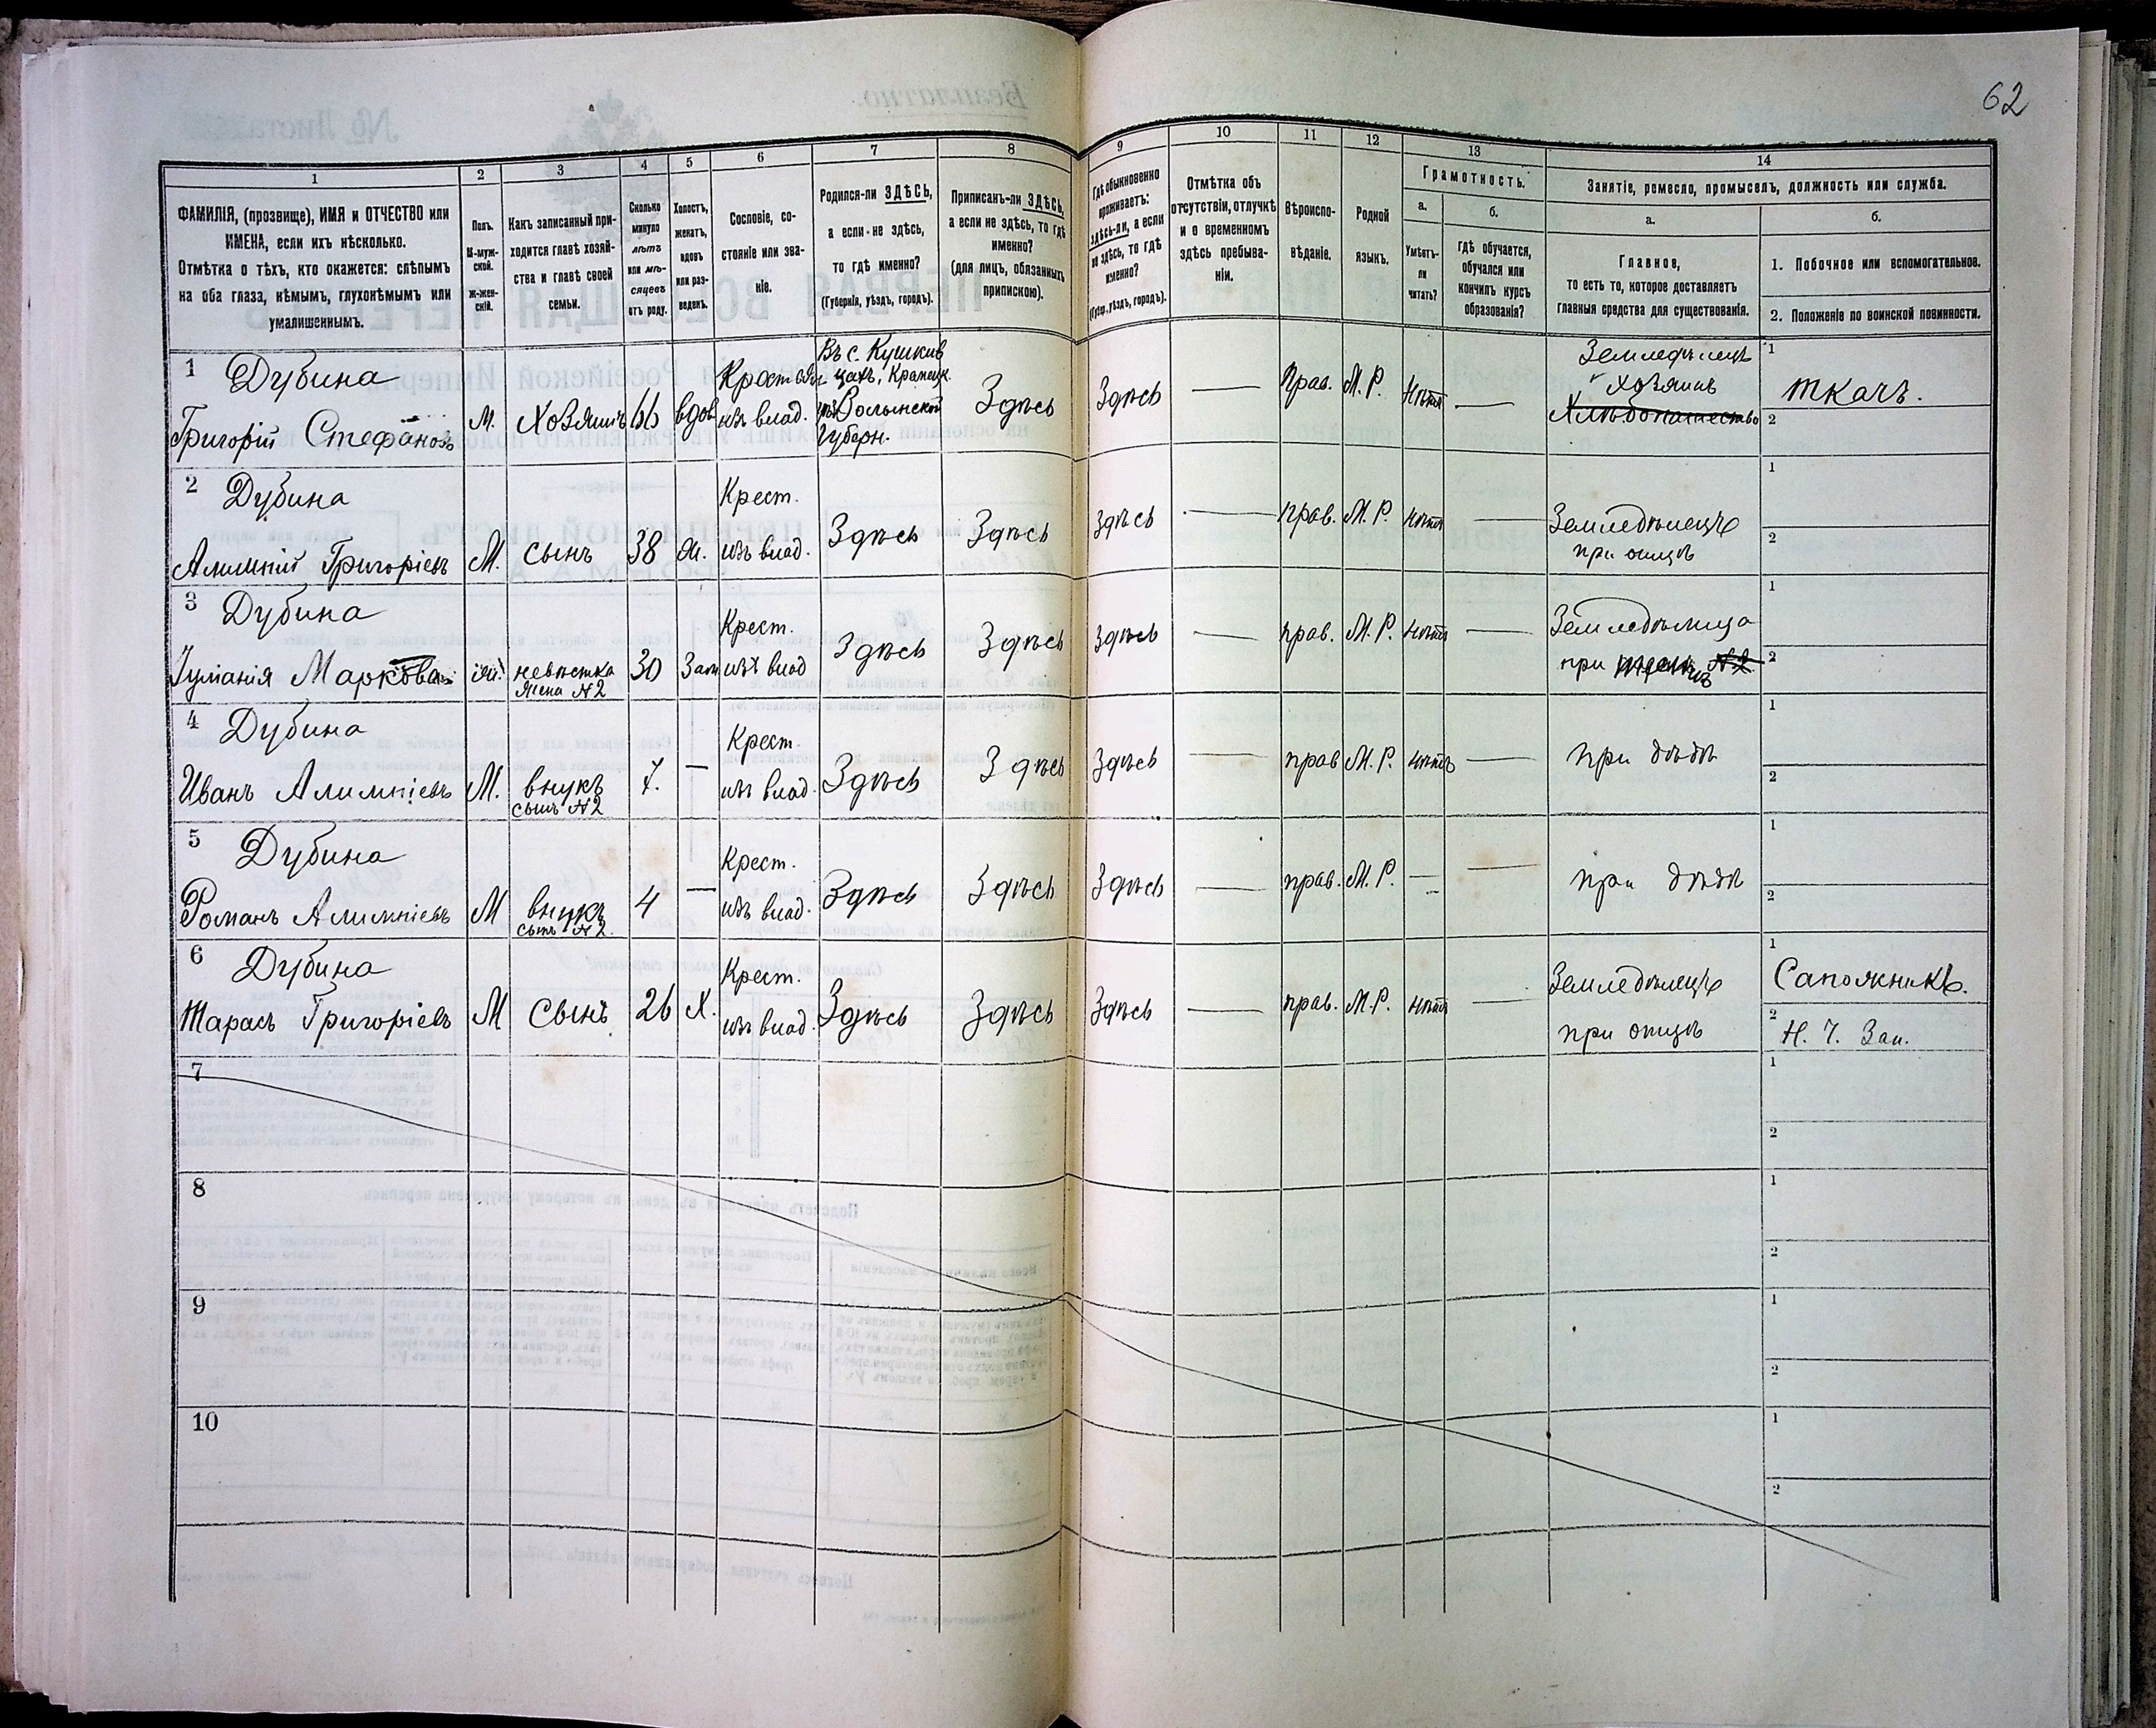 62
1 2 3 4 5 6 7 8 9 10 11 12 13 14
ФАМИЛІЯ, (прозвище), ИМЯ и ОТЧЕСТВО или
ИМЕНА, если ихъ нѣсколько.
Отмѣтка о тѣхъ, кто окажется: слѣпымъ
на оба глаза, нѣмымъ, глухонѣмымъ или
умалишеннымъ.
Полъ.
М-муж-
ской.
Ж-жен-
скій.
Какъ записанный при-
ходится главѣ хозяй-
ства и главѣ своей
семьи.
Сколько
минуло
лѣтъ
или мѣ-
сяцевъ
отъ роду.
Холостъ,
женатъ,
вдовъ
или раз-
веденъ.
Сословіе, со-
стояніе или зва-
ніе.
Родился-ли ЗДѢСЬ,
а если не здѣсь,
то гдѣ именно?
(Губернія, уѣздъ, городъ).
Приписанъ-ли ЗДѢСЬ,
а если не здѣсь, то гдѣ
именно?
(для лицъ, обязанныхъ
припискою).
Гдѣ обыкновенно
проживаетъ:
здѣсь-ли, а если
не здѣсь, то гдѣ
именно?
(Губер., уѣздъ, городъ).
Отмѣтка объ
отсутствіи, отлучкѣ
и о временномъ
здѣсь пребыва-
ніи.
Вѣроиспо-
вѣданіе.
Родной
языкъ.
Грамотность.
а.
Умѣетъ-
ли
читать?
б.
гдѣ обучается,
обучался или
кончилъ курсъ
образованія?
Занятіе, ремесло, промыселъ, должность или служба.
а.
Главное,
то есть то, которое доставляетъ
главныя средства для существованія.
б.
1. Побочное или вспомогательное.
2. Положеніе по воинской повинности.
1 Дубина
Григорій Стефановъ
М.
Хозяинъ
66
вдов
Крест
изъ влад.
Въ с. Кушкив
цахъ, Кременец.
Волынской
Губерн.
Здѣсь
Здѣсь
—
Прав.
М. Р.
нѣтъ
—
Земледѣлецъ
хозяинъ
Хлѣбопашество
1
ткачъ.
2
2 Дубина
Алимпій Григоріевъ
М.
сынъ
38
ж.
Крест.
изъ влад.
Здѣсь
Здѣсь
Здѣсь
—
прав.
М. Р.
нѣтъ
—
Земледѣлецъ
при отцѣ
1
2
3 Дубина
Іуліанія Маркова
невѣстка
жена №2
30
Зам
Крест.
изъ влад
Здѣсь
Здѣсь
Здѣсь
—
прав.
М. Р.
нѣтъ
—
Земледѣлица
при №2
1
2
4 Дубина
Иванъ Алимпіевъ
М.
внукъ
сынъ №2
7.
—
Крест.
изъ влад.
Здѣсь
Здѣсь
Здѣсь
—
прав
М. Р.
нѣтъ
—
при дѣдѣ
1
2
5 Дубина
Романъ Алимпіевъ
М
внукъ
сынъ №2.
4
—
Крест.
изъ влад.
Здѣсь
Здѣсь
Здѣсь
—
прав.
М. Р.
—
—
при дѣдѣ
1
2
6 Дубина
Тарасъ Григоріевъ
М
сынъ
26
Х.
Крест.
изъ влад.
Здѣсь
Здѣсь
Здѣсь
—
прав.
М. Р.
нѣтъ
—
Земледѣлецъ
при отцѣ
1
Сапожникъ.
2
Н. Ч. Зап.
7
1
2
8
1
2
9
1
2
10
1
2